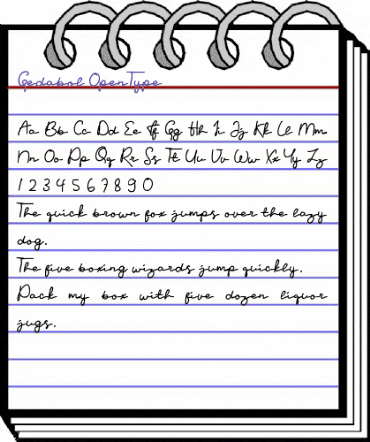 Gedabol OpenType
Aa Bb Cc Dd Ee Ff Gg Hh Ii Jj Kk Ll Mm
Nn Oo Pp Qq Rr Ss Tt Uu Vv Ww Xx Yy Zz
1 2 3 4 5 6 7 8 9 0
The quick brown fox jumps over the lazy
dog.
The five boxing wizards jump quickly.
Pack my box with five dozen liquor
jugs.